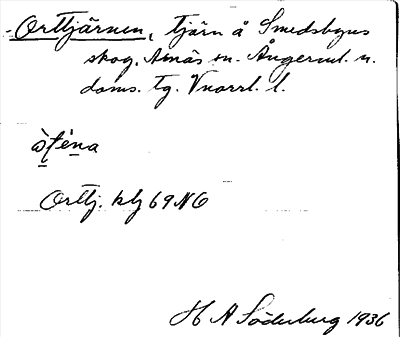 Orttjärnen, tjärn å Smedsbyns
skog, Arnäs sn. Ångerml. n.
doms. tg. Vnorrl. l.
Orttj. kbl 69 NO
H A Söderberg 1936